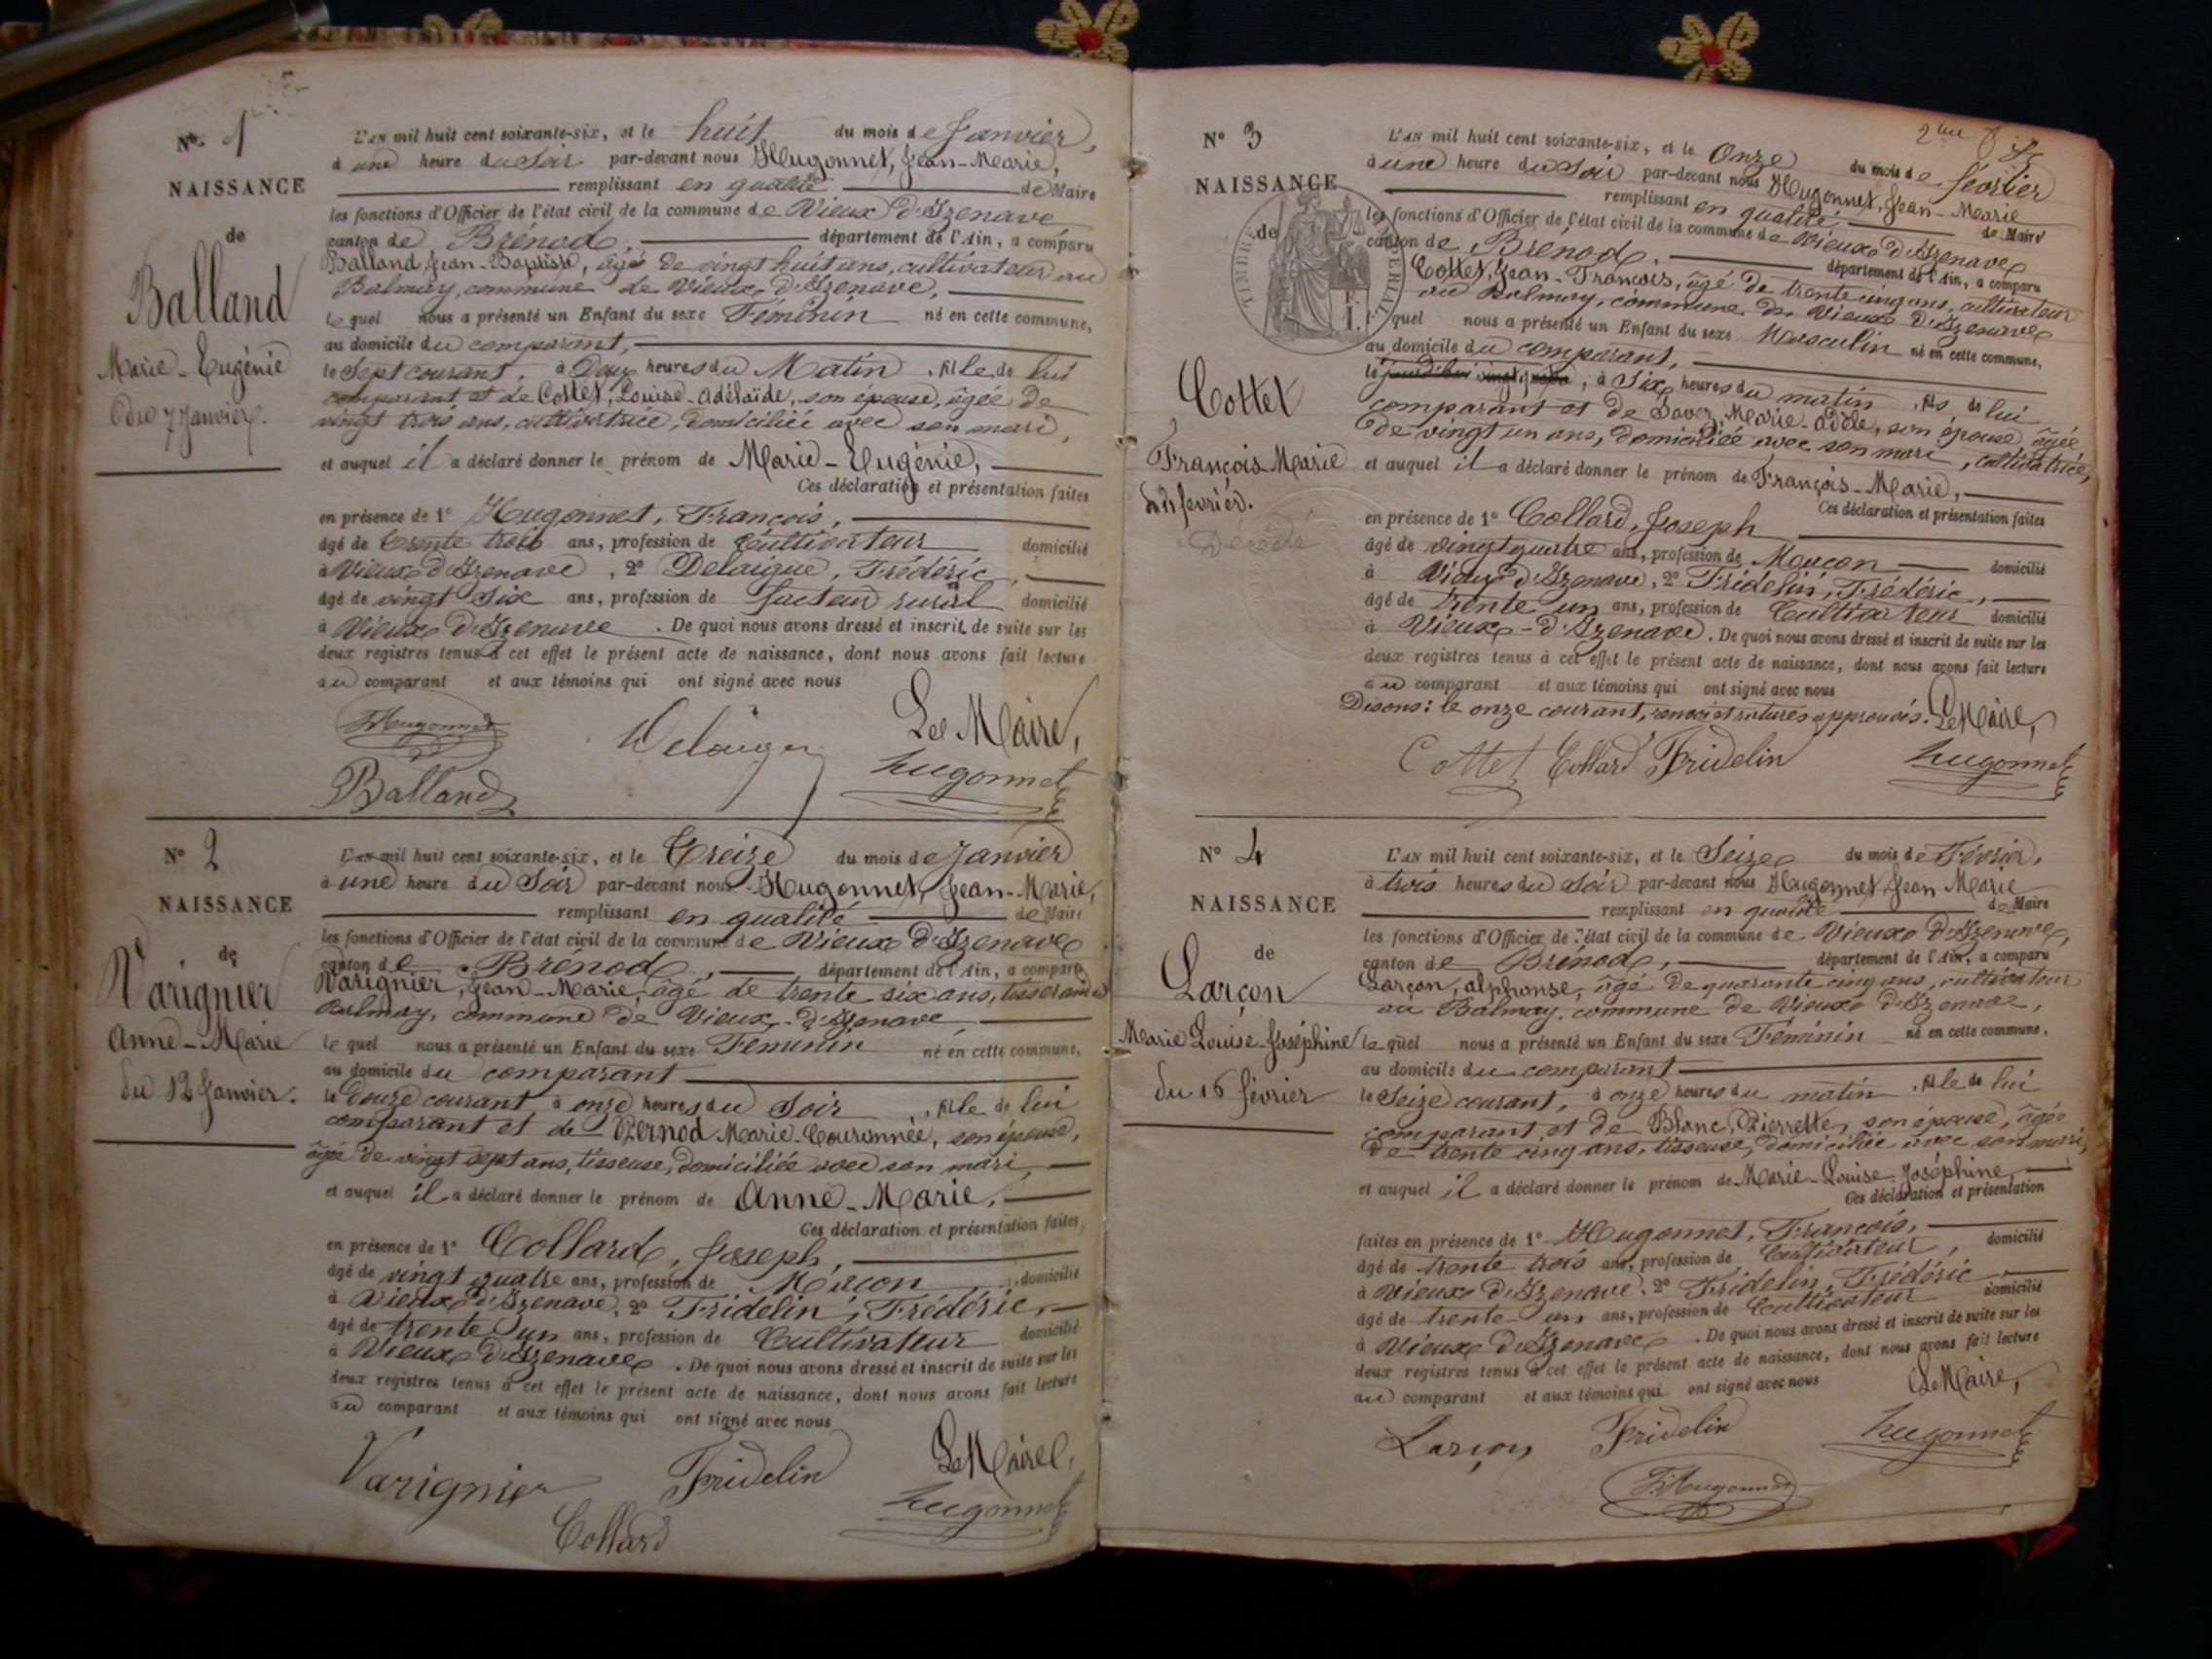 N° 1
NAISSANCE
de
Balland
Marie-Eugénie
du 7 Janvier.
L'AN mil huit cent soixante-six, et le huit du mois de Janvier,
à une heure du Soir par-devant nous Hugonnet, Jean-Marie,
remplissant en qualité de Maire
les fonctions d'Officier de l'état civil de la commune de Vieux d'Izenave
canton de Brénod, département de l'Ain, a comparu
Balland Jean-Baptiste, âgé de vingt huit ans, cultivateur au
Balmay, commune de Vieux d'Izenave,
lequel nous a présenté un Enfant du sexe Féminin né en cette commune,
au domicile du comparant,
le Sept courant, à Deux heures du Matin, fille de lui
comparant et de Cottet, Louise-Adélaïde, son épouse, âgée de
vingt trois ans, cultivatrice, domiciliée avec son mari,
et auquel il a déclaré donner le prénom de Marie-Eugénie,
Ces déclaration et présentation faites
en présence de 1° Hugonnet, François,
âgé de trente trois ans, profession de Cultivateur domicilié
à Vieux d'Izenave, 2° Delaigue, Frédéric,
âgé de vingt Six ans, profession de facteur rural domicilié
à Vieux d'Izenave. De quoi nous avons dressé et inscrit de suite sur les
deux registres tenus à cet effet le présent acte de naissance, dont nous avons fait lecture
au comparant et aux témoins qui ont signé avec nous
Le Maire,
FHugonnet Delaigue Hugonnet
Balland
N° 2
NAISSANCE
de
Varignier
Anne-Marie
du 12 Janvier.
L'AN mil huit cent soixante-six, et le Treize du mois de Janvier
à une heure du Soir par-devant nous Hugonnet, Jean-Marie,
remplissant en qualité de Maire
les fonctions d'Officier de l'état civil de la commune de Vieux d'Izenave
canton de Brénod, département de l'Ain, a comparu
Varignier, Jean-Marie, âgé de trente six ans, tisserand au
Balmay, commune de Vieux-d'Izenave,
le quel nous a présenté un Enfant du sexe Féminin né en cette commune,
au domicile du comparant
le douze courant à onze heures du Soir, fille de lui
comparant et de Pernod Marie-Couronnée, son épouse,
âgée de vingt sept ans, tisseuse, domiciliée avec son mari,
et auquel il a déclaré donner le prénom de Anne-Marie.
Ces déclaration et présentation faites,
en présence de 1° Collard, Joseph,
âgé de vingt quatre ans, profession de Maçon domicilié
à Vieux d'Izenave, 2° Fridelin, Frédéric,
âgé de trente un ans, profession de Cultivateur domicilié
à Vieux d'Izenave. De quoi nous avons dressé et inscrit de suite sur les
deux registres tenus à cet effet le présent acte de naissance, dont nous avons fait lecture
au comparant et aux témoins qui ont signé avec nous
Le Maire,
Varignier Fridelin Hugonnet
Collard
2me
N° 3
NAISSANCE
de
TIMBRE IMPÉRIAL
1 F.
Cottet
François-Marie
du 11 février.
Décédé
L'AN mil huit cent soixante-six, et le Onze du mois de février
à une heure du Soir par-devant nous Hugonnet, Jean-Marie
remplissant en qualité de Maire
les fonctions d'Officier de l'état civil de la commune de Vieux d'Izenave
canton de Brénod. département de l'Ain, a comparu
Cottet, Jean-François, âgé de trente cinq ans, cultivateur
au Balmay, commune de Vieux d'Izenave
le quel nous a présenté un Enfant du sexe Masculin né en cette commune,
au domicile du comparant,
le, à Six heures du matin, fils de lui
comparant et de Savez, Marie-Adèle, son épouse âgée
de vingt un ans, domiciliée avec son mari, cultivatrice,
et auquel il a déclaré donner le prénom de François-Marie,
Ces déclaration et présentation faites
en présence de 1° Collard, Joseph
âgé de vingt quatre ans, profession de Maçon domicilié
à Vieux d'Izenave, 2° Fridelin, Frédéric,
âgé de trente un ans, profession de Cultivateur domicilié
à Vieux-d'Izenave. De quoi nous avons dressé et inscrit de suite sur les
deux registres tenus à cet effet le présent acte de naissance, dont nous avons fait lecture
au comparant et aux témoins qui ont signé avec nous
Disons: le onze courant, renvoi et ratures approuvés. Le Maire,
Cottet Collard Fridelin Hugonnet
N° 4
NAISSANCE
de
Larçon
Marie Louise-Joséphine
du 16 février
L'AN mil huit cent soixante-six, et le Seize du mois de Février,
à trois heures du Soir par-devant nous Hugonnet, Jean Marie
remplissant en qualité de Maire
les fonctions d'Officier de l'état civil de la commune de Vieux d'Izenave,
canton de Brénod, département de l'Ain, a comparu
Larçon, alphonse, âgé de quarante cinq ans, cultivateur
au Balmay, commune de Vieux d'Izenave,
le quel nous a présenté un Enfant du sexe Féminin né en cette commune,
au domicile du comparant
le Seize courant, à onze heures du matin, fille de lui
comparant et de Blanc, Pierrette, son épouse, âgée
de trente cinq ans, tisseuse, domiciliée avec son mari,
et auquel il a déclaré donner le prénom de Marie-Louise-Joséphine,
Ces déclaration et présentation
faites en présence de 1° Hugonnet, François,
âgé de trente trois ans, profession de Cultivateur, domicilié
à Vieux d'Izenave, 2° Fridelin, Frédéric
âgé de trente un ans, profession de Cultivateur domicilié
à Vieux d'Izenave. De quoi nous avons dressé et inscrit de suite sur les
deux registres tenus à cet effet le présent acte de naissance, dont nous avons fait lecture
au comparant et aux témoins qui ont signé avec nous
Le Maire,
Larçon Fridelin Hugonnet
FHugonnet